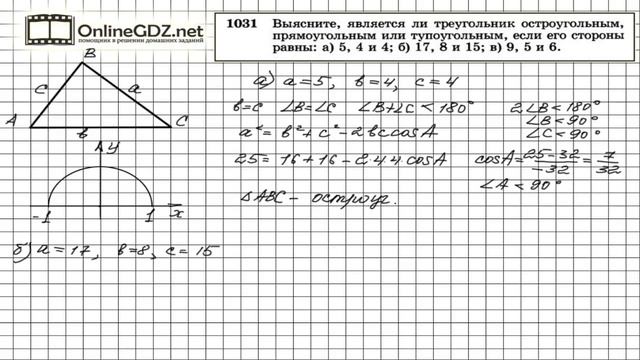 OnlineGDZ.net
помощник в решении домашних заданий
1031 Выясните, является ли треугольник остроугольным,
прямоугольным или тупоугольным, если его стороны
равны: а) 5, 4 и 4; б) 17, 8 и 15; в) 9, 5 и 6.
B
c a
A b C
y
-1 1 x
а) a=5, b=4, c=4
b=c ∠B=∠C ∠B+∠C<180° 2∠B<180°
∠B<90°
∠C<90°
a²=b²+c²-2bc cosA
25=16+16-2·4·4 cosA cosA=25-32/-32=7/32
∠A<90°
△ABC – остроуг.
б) a=17, b=8, c=15